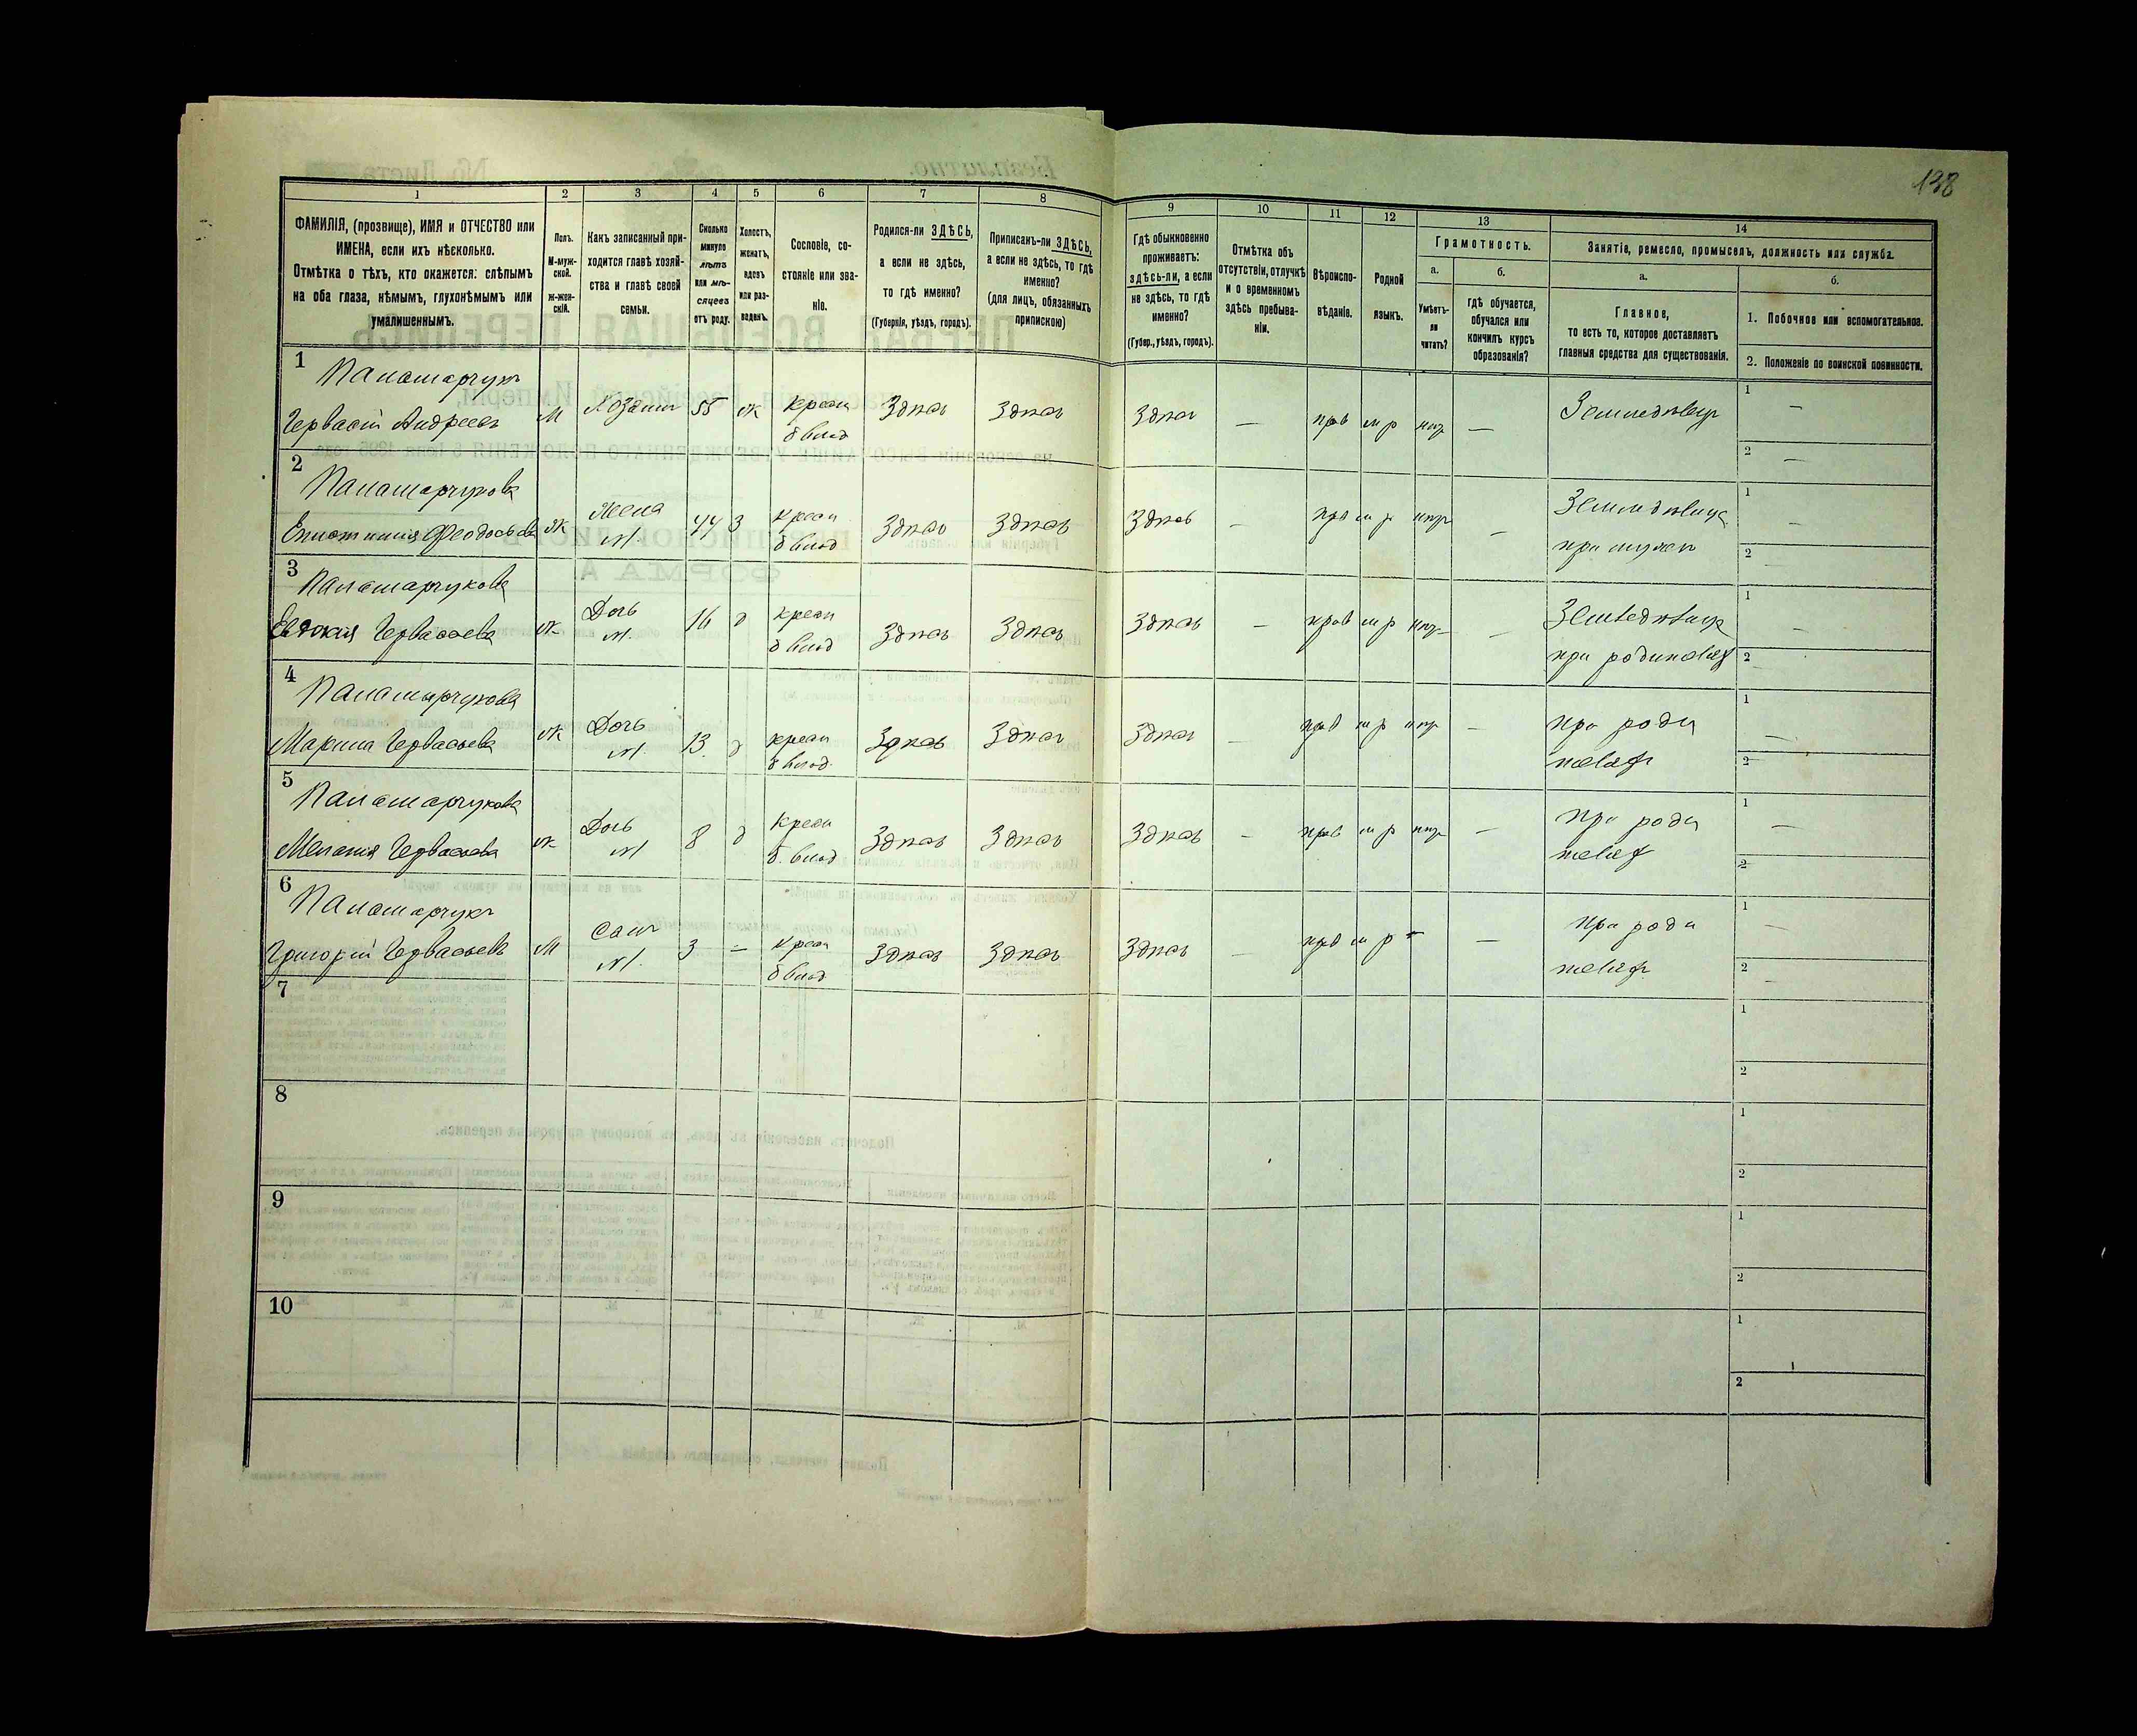 138
1 2 3 4 5 6 7 8 9 10 11 12 13 14
ФАМИЛІЯ, (прозвище), ИМЯ и ОТЧЕСТВО или
ИМЕНА, если ихъ нѣсколько.
Отмѣтка о тѣхъ, кто окажется: слѣпымъ
на оба глаза, нѣмымъ, глухонѣмымъ или
умалишеннымъ.
Полъ.
М-муж-
ской.
ж-жен-
скій.
Какъ записанный при-
ходится главѣ хозяй-
ства и главѣ своей
семьи.
Сколько
минуло
лѣтъ
или мѣ-
сяцевъ
отъ роду.
Холостъ,
женатъ,
вдовъ
или раз-
веденъ.
Сословіе, со-
стояніе или зва-
ніе.
Родился-ли ЗДѢСЬ,
а если не здѣсь,
то гдѣ именно?
(Губернія, уѣздъ, городъ).
Приписанъ-ли ЗДѢСЬ,
а если не здѣсь, то гдѣ
именно?
(для лицъ, обязанныхъ
припискою)
Гдѣ обыкновенно
проживаетъ:
здѣсь-ли, а если
не здѣсь, то гдѣ
именно?
(Губер., уѣздъ, городъ).
Отмѣтка объ
отсутствіи, отлучкѣ
и о временномъ
здѣсь пребыва-
ніи.
Вѣроиспо-
вѣданіе.
Родной
языкъ.
Грамотность.
а.
Умѣетъ-
ли
читать?
б.
Гдѣ обучается,
обучался или
кончилъ курсъ
образованія?
Занятіе, ремесло, промыселъ, должность или служба.
а.
Главное,
то есть то, которое доставляетъ
главныя средства для существованія.
б.
1. Побочное или вспомогательное.
2. Положеніе по воинской повинности.
1 Паламарчукъ
Гервасій Андреевъ М Хозяинъ 55 ж Крест б влад Здѣсь Здѣсь Здѣсь — прав м р нтр — Земледѣлецъ 1 — 2 —
2 Паламарчукова
Феодосьева ж Жена М. 44 З Крест б влад Здѣсь Здѣсь Здѣсь — пра м р нтр —
при мужѣ 1 — 2 —
3 Паламарчукова
Евдокія Гервасьева ж Дочь М. 16 д Крест б влад Здѣсь Здѣсь Здѣсь — прав м р нтр —
при 1 — 2 —
4 Паламарчукова
Марина Гервасьева ж Дочь М. 13 д Крест б влад. Здѣсь Здѣсь Здѣсь — прав м р нтр — при роди
теляхъ 1 — 2 —
5 Паламарчукова
Меланія Гервасьева ж Дочь М 8 д Крест б. влад Здѣсь Здѣсь Здѣсь — прав м р нтр — при роди
теляхъ 1 — 2 —
6 Паламарчукъ
Григорій Гервасьевъ М Сынъ М. 3 – Крест б влад Здѣсь Здѣсь Здѣсь — прав м р – — при роди
теляхъ 1 — 2 —
7 1 2
8 1 2
9 1 2
10 1 2